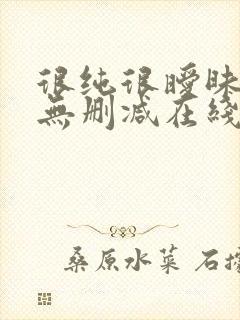 很纯很暧昧
無删减在綫
桑原水菜 石